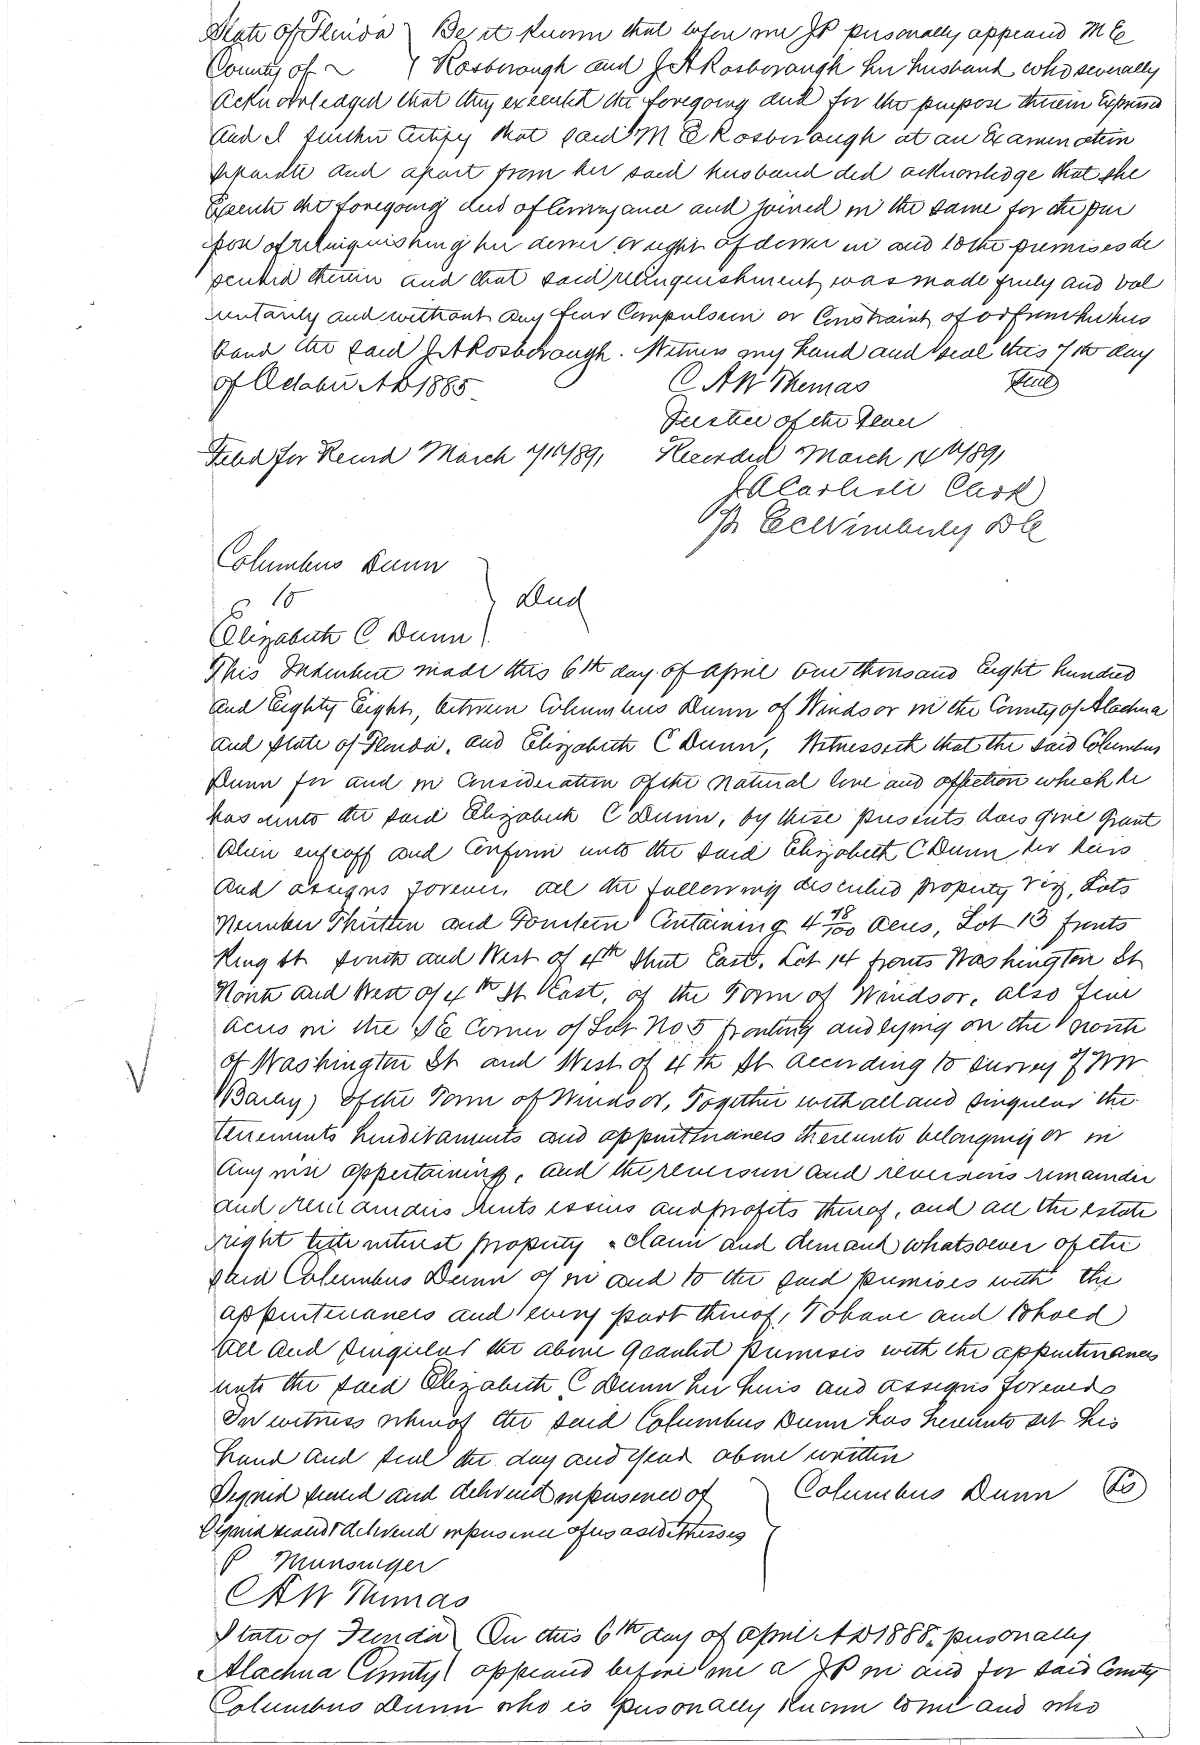 State of Florida } Be it known that before me JP personally appeared M E
County of ~ } Rosborough and J A Rosborough her husband who severally
acknowledged that they executed the foregoing deed for the purpose therein Expressed
And I further Certify that said M E Rosborough at an Examination
separate and apart from her said husband did acknowledge that she
Execute the foregoing deed of Conveyance and joined in the same for the pur
pose of relinquishing her dower or right of dower in and to the premises de
scribed therein and that said relinquishment was made freely and vol
untarily and without any fear Compulsion or Constraint of or from her hus
band the said J A Rosborough. Witness my hand and seal this 7th day
of October AD 1885 C A W Thomas Seal
Justice of the Peace
Filed for Record March 7th 1891 Recorded March 14th 1891
J A Carlisle Clerk
Pr E C Wimberly D C
Columbus Dunn
to } Deed
Elizabeth C Dunn
This Indenture made this 6th day of April one thousand Eight hundred
and Eighty Eight, between Columbus Dunn of Windsor in the County of Alachua
and State of Florida, and Elizabeth C Dunn, Witnesseth that the said Columbus
Dunn for and in Consideration of the natural love and affection which he
has unto the said Elizabeth C Dunn, by these presents does give grant
alien enfeoff and Confirm unto the said Elizabeth C Dunn her heirs
and assigns forever, all the following described property viz, Lots
Number Thirteen and Fourteen Containing 4 78/100 acres, Lot 13 fronts
King St South and West of 4th Street East. Lot 14 fronts Washington St
North and West of 4th St East, of the Town of Windsor, also five
acres in the S E Corner of Lot No 5 fronting and lying on the north
of Washington St and West of 4th St according to survey of W W
Bailey) of the Town of Windsor, Together with all and singular the
tenements hereditaments and appurtenances thereunto belonging or in
any wise appertaining, and the reversion and reversions remainder
and remainders rents issues and profits thereof, and all the estate
right title interest property claim and demand whatsoever of the
said Columbus Dunn of in and to the said premises with the
appurtenances and every part thereof, To have and to hold
all and singular the above granted premises with the appurtenances
unto the said Elizabeth C Dunn her heirs and assigns forever
In witness whereof the said Columbus Dunn has hereunto set his
hand and seal the day and year above written
Signed sealed and delivered in presence of } Columbus Dunn Ls
Signed sealed & delivered in presence of us as witnesses
P Munsinger
C A W Thomas
State of Florida } On this 6th day of April AD 1888, personally
Alachua County } appeared before me a JP in and for said County
Columbus Dunn who is personally known to me and who